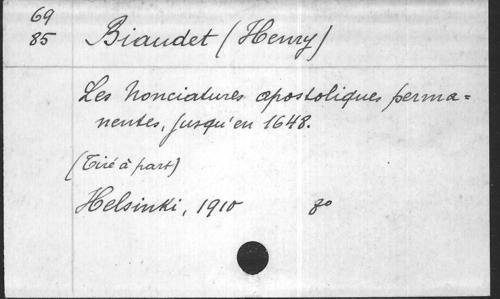 69
85
Biaudet (Henry)
Les Nonciatures apostoliques perma=
nentes, jusqu'en 1648.
(Tiré à part)
Helsinki, 1910 8o